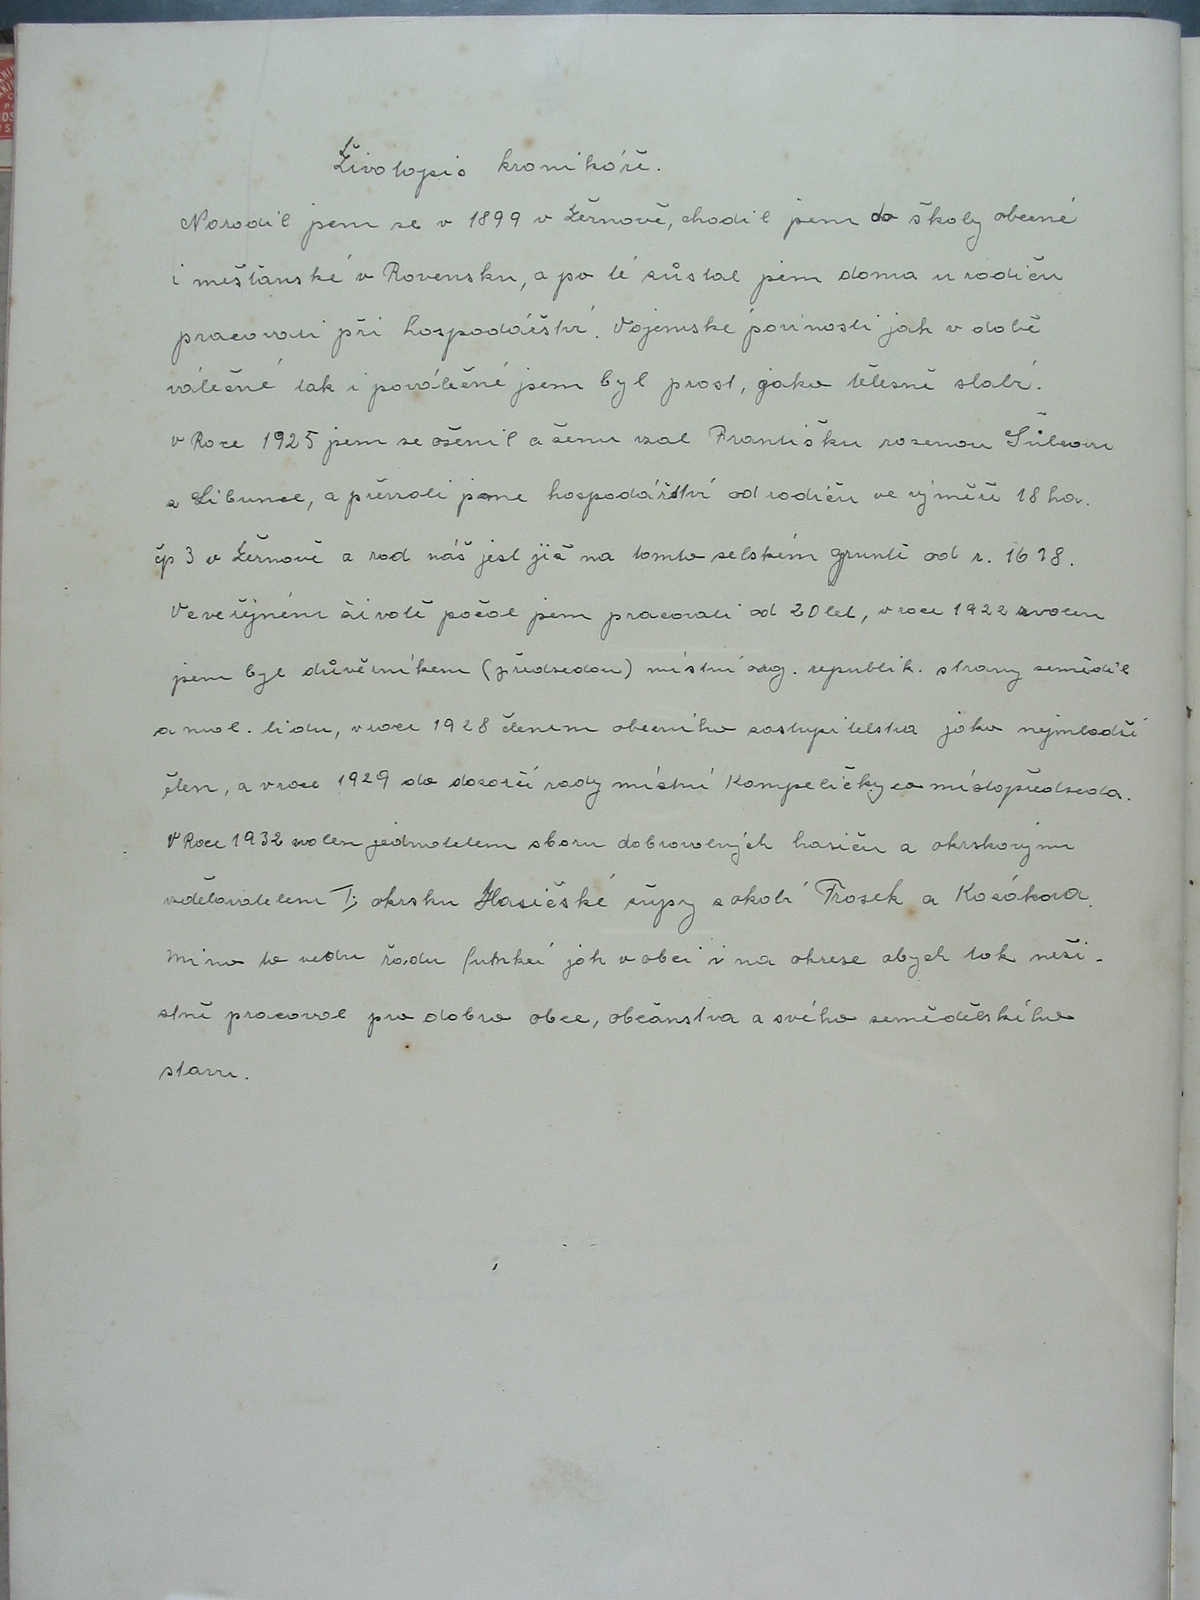 Životopis kronikáře.
Narodil jsem se v 1899 v Žernově, chodil jsem do školy obecné
i mešťanské v Rovensku, a po té zůstal jsem doma u rodičů
pracovati při hospodářství. Vojenské povinosti jak v době
válečné tak i poválečné jsem byl prost, jako tělesně slabí.
V Roce 1925 jsem se oženil a ženu vzal Františku rozenou
z Libunce, a převzali jsme hospodářství od rodičů ve výměře 18 ha.
čp 3 v Žernově a rod náš jest již na tomto selském gruntě od r. 1678.
Ve veřejném životě počal jsem pracovati od 20 let, v roce 1922 zvolen
jsem byl důvěrníkem (předsedou) místní org. republik. strany zeměděl
a mal. lidu, v roce 1928 členem obecního zastupitelstva jako nejmladší
člen, a v roce 1929 do dozorčí rady místní Kampeličky co místopředseda.
V Roce 1932 zvolen jednatelem sboru dobrovolných hasičů a okrskovým
vzdělavatelem I. okrsku Hasičské župy z okolí Trosek a Kozákova.
Mimo to vedu řadu funkcí jak v obci i na okrese abych tak nezi-
stně pracoval pro dobro obce, občanstva a svého zemědělského
stavu.